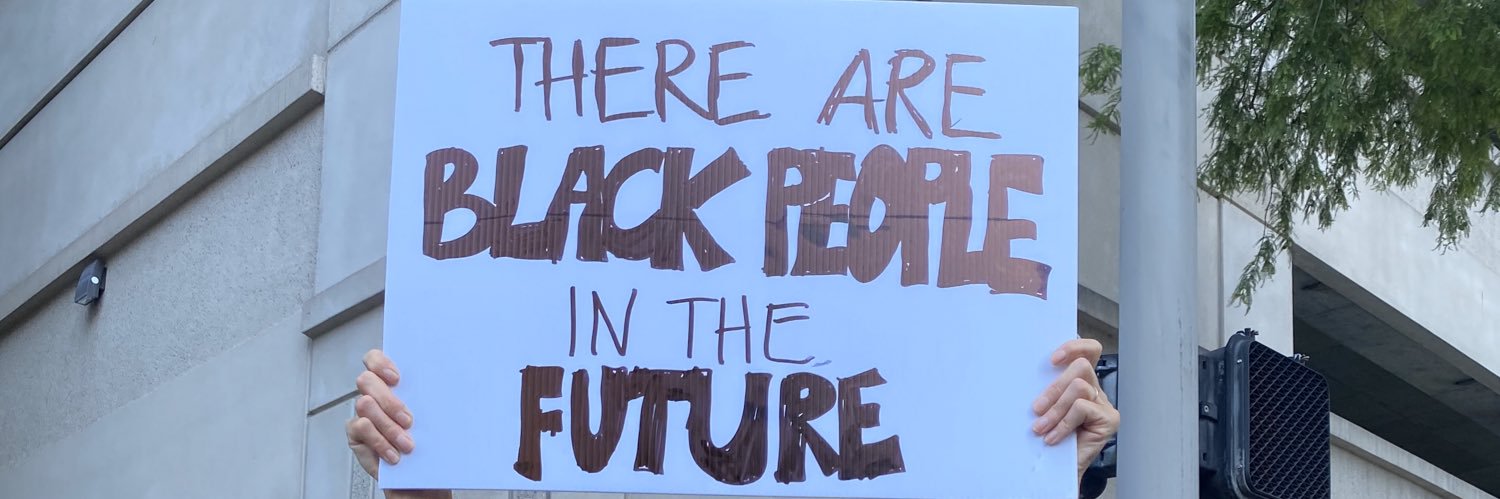 THERE ARE
BLACK PEOPLE
IN THE
FUTURE